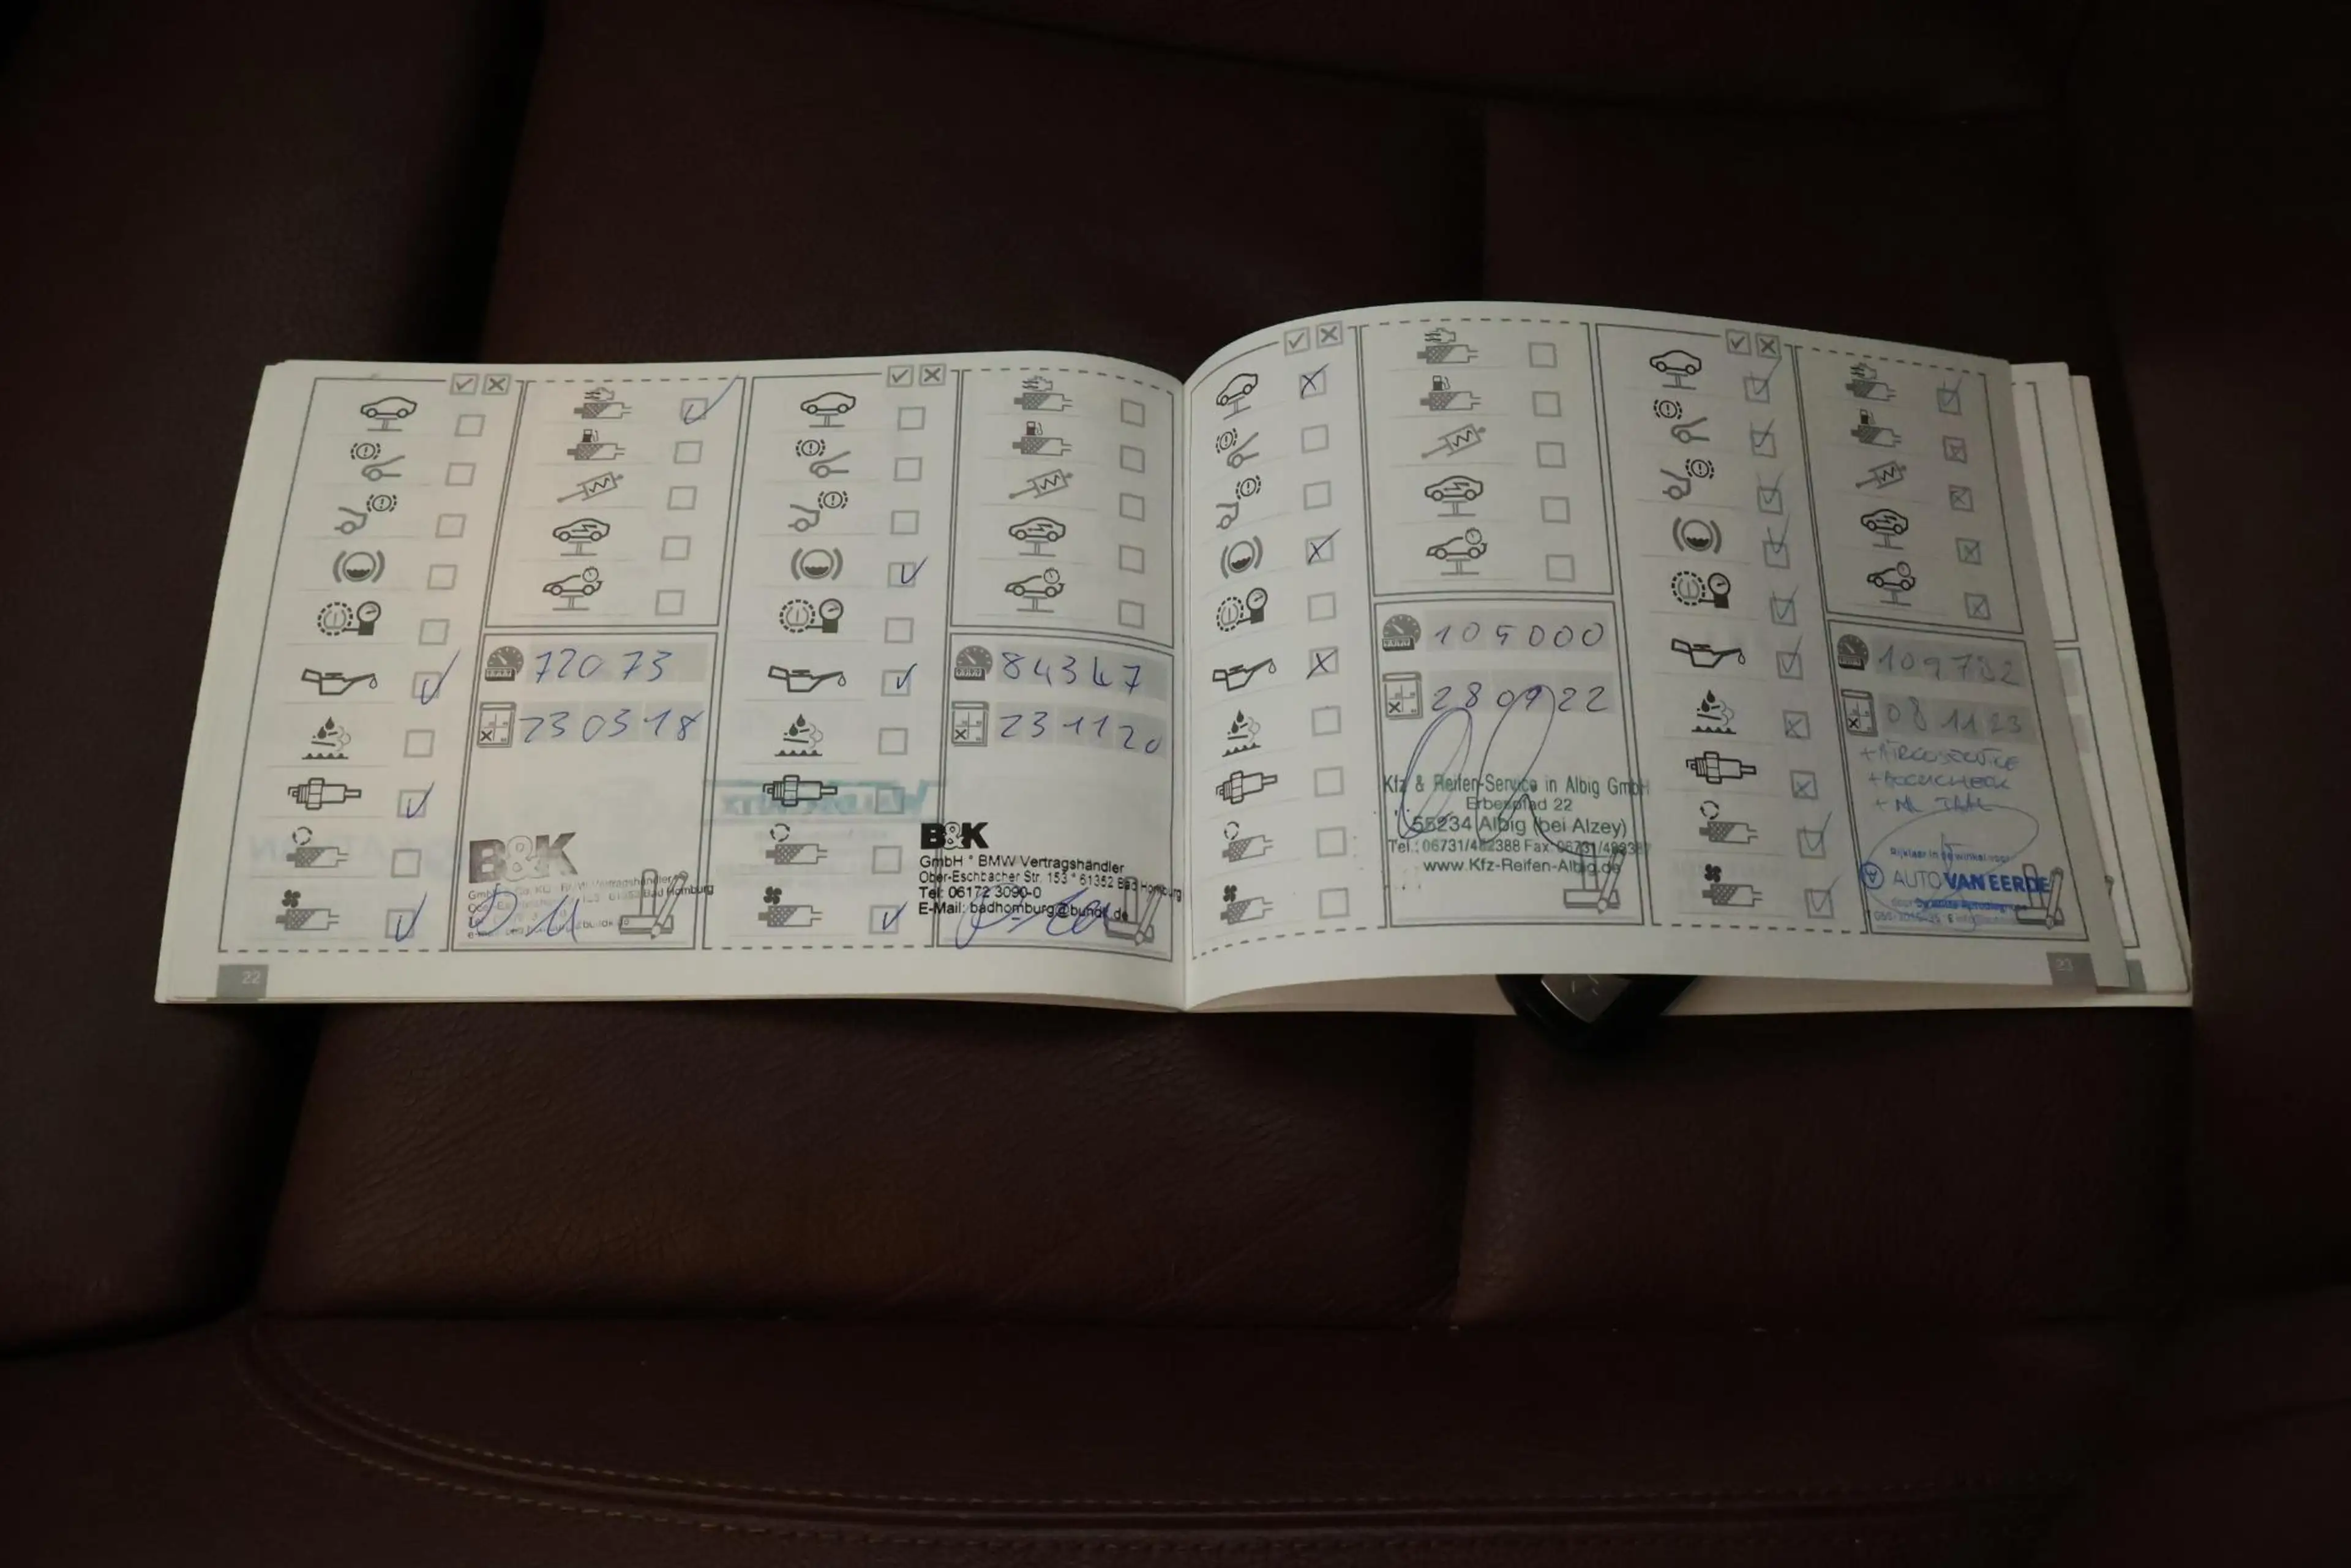 72073
230318
B&K
22
84347
231120
B&K
GmbH * BMW Vertragshändler
Ober-Eschbacher Str. 153 * 61352 Bad Homburg
Tel: 06172 3090-0
E-Mail: badhomburg@bundk.de
105000
280922
Kfz & Reifen-Service in Albig GmbH
Erbespfad 22
55234 Albig (bei Alzey)
Tel.: 06731/482388 Fax: 06731/
www.Kfz-Reifen-Albig.de
109732
081123
+ AIRCOSERVICE
AUTO VAN EERDE
23